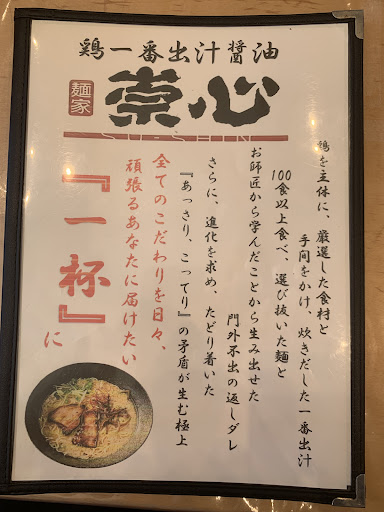 鶏一番出汁醤油
麺家
崇心
SU-SHIN
鶏を主体に、厳選した食材と
手間をかけ、炊きだした一番出汁
100食以上食べ、選び抜いた麺と
お師匠から学んだことから生み出せた
門外不出の返しダレ
さらに、進化を求め、たどり着いた
『あっさり、こってり』の矛盾が生む極上
全てのこだわりを日々、
頑張るあなたに届けたい
『一杯』に